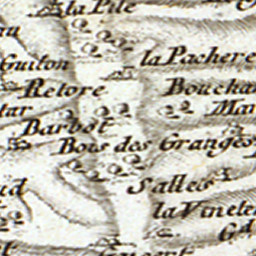 la Pile
Guiton
la Pachere
Retore
Bouchar
Mar
Barbot
Bois des Granges
Salles
la Vinete
Gd